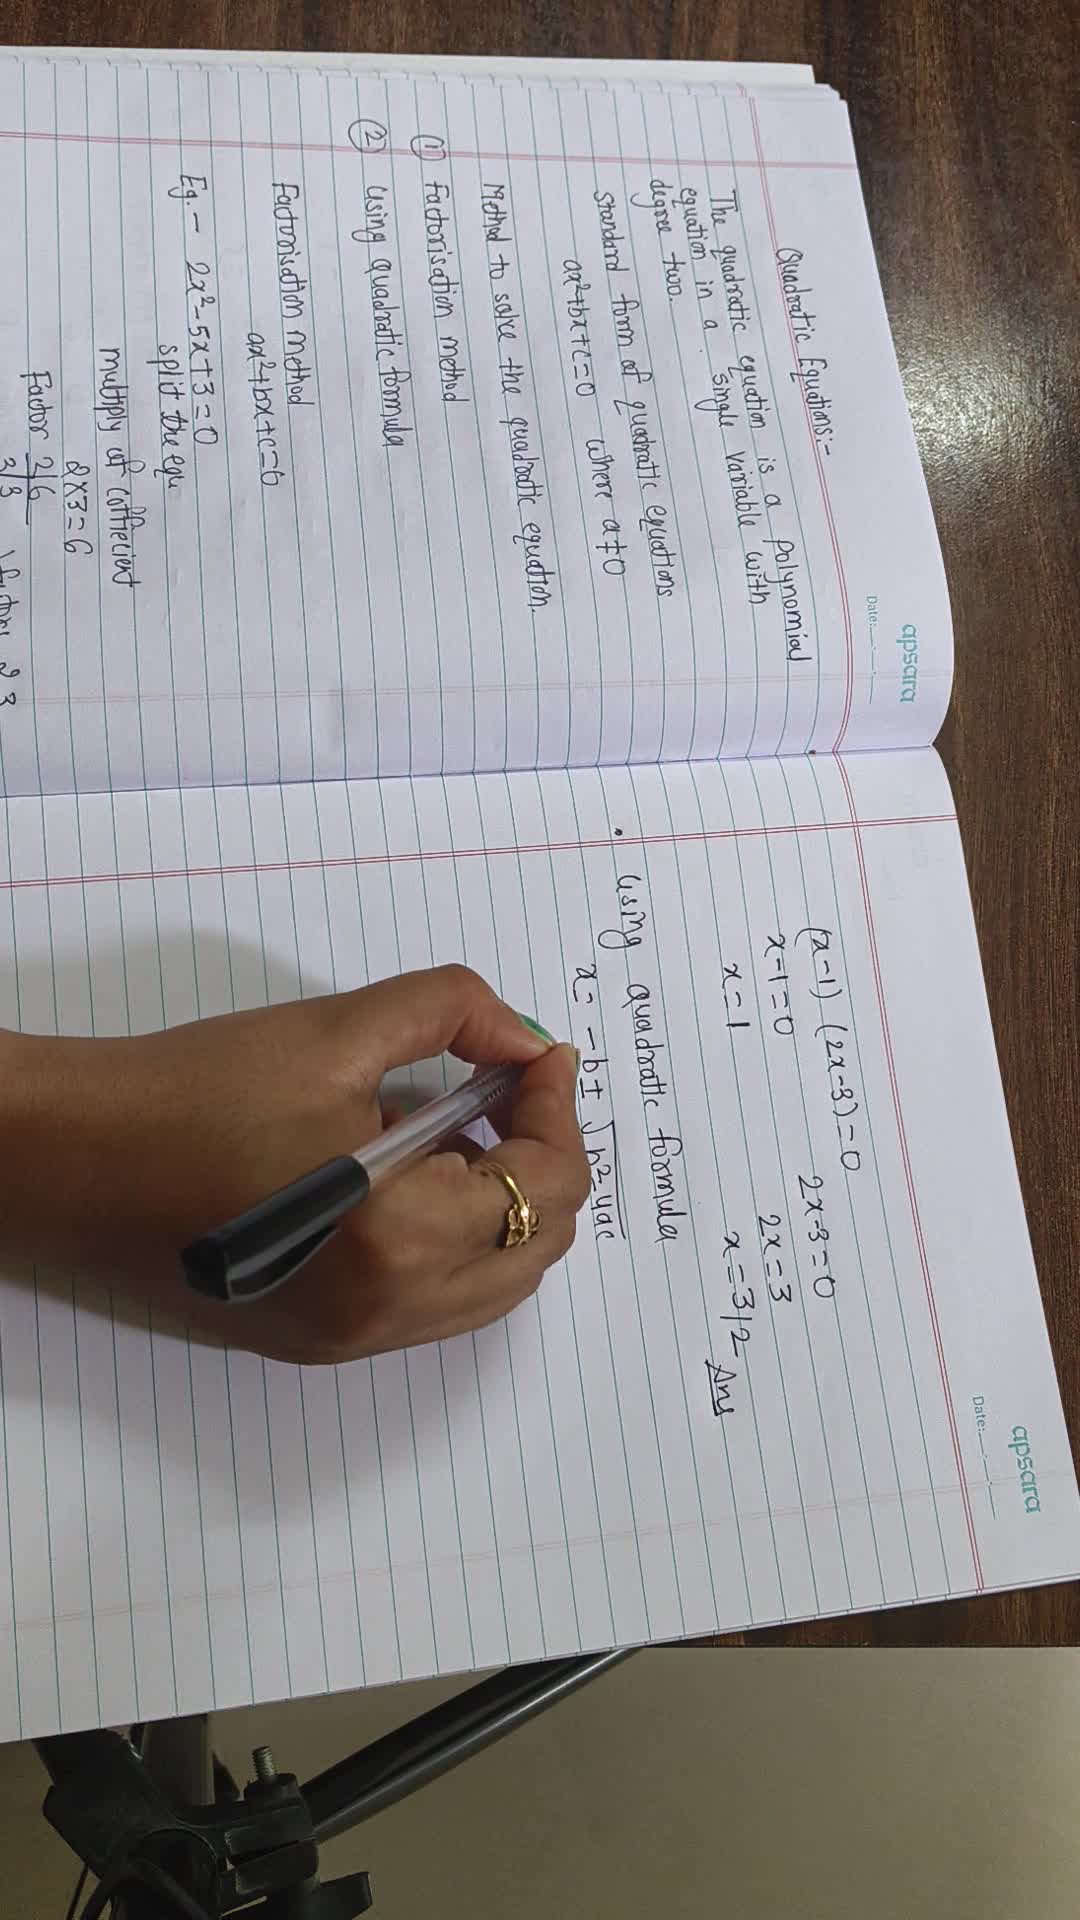 apsara
Date:
Quadratic Equations:-
The quadratic equation is a polynomial
equation in a single variable with
degree two.
Standard form of quadratic equations
ax²+bx+c=0 where a≠0
Method to solve the quadratic equation.
① Factorisation method
② Using quadratic formula
Factorisation method
ax²+bx+c=6
Eg.- 2x²-5x+3=0
split the equ
multiply of cofficient
2×3=6
Factor 2|6
3|3
factors 2 3
apsara
Date:
(x-1) (2x-3)=0
x-1=0 2x-3=0
2x=3
x=1 x=3/2 Ans
Using quadratic formula
x= -b± √b²-4ac